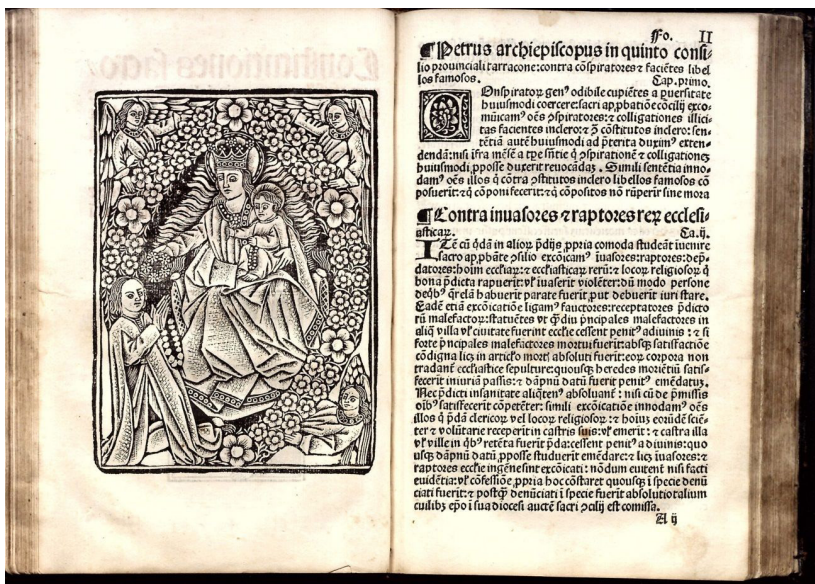 Fo. II
¶Petrus archiepiscopus in quinto consi
lio prouinciali tarracone:contra cōspiratores ⁊ faciētes libel
los famosos. Cap.primo.
COnspiratoꝝ genꝰ odibile cupiētes a peruersitate
huiusmodi coercere:sacri approbatiōe cōcilij exco
mūicamꝰ oēs ꝯspiratores:⁊ colligationes illici
tas facientes in clero:⁊ ꝯ cōstitutos in clero:sen
tētiā autē huiusmodi ad pterita duximꝰ exten
dendā:nisi ifra mēsē a tpe snīe
huiusmodi ꝓposse duxerit reuocādas. Simili sententia inno
damꝰ oēs illos q̄ contra ꝯstitutos in clero libellos famosos cō
posuerit:⁊ q̄ cōponi fecerit:⁊ q̄ cōpositos nō ruperit sine mora
¶Contra inuasores ⁊ raptores reꝝ ecclesi
asticaꝝ. Ca.ij.
ITē cū q̄dā in alioꝝ pdijs ꝓpria comoda studeāt iuenire
sacro approbāte ꝯsilio excōicamꝰ iuasores:raptores:dep
datores:hoim ecclīaꝝ:⁊ ecclīasticaꝝ rerū:⁊ locoꝝ religiosoꝝ q̄
bona pdicta rapuerit:vł iuaserit violēter:dū modo persone
q̄relā habuerit parate fuerit,put debuerit iuri stare.
Eadē etiā excōicatiōe ligamꝰ fauctores:receptatores pdicto
rū malefactoꝝ:statuētes vt q̄ diu pncipales malefactores in
aliq̄ villa vł ciuitate fuerint ecclīe cessent penitꝰ adiuinis:⁊ si
forte pncipales malefactores mortui fuerit:absq̄ satisfactiōe
cōdigna licꝫ in articło mortꝭ absoluti fuerit:eoꝝ corpora non
tradant ecclīastice sepulture:quousq̄ heredes moriētiū satis
fecerit iniuriā passis:⁊ dāpnū datū fuerit penitꝰ emēdatuꝫ.
Nec pdicti insanitate aliq̄ten⁹ absoluant: nisi cū de pmissis
oībꝰ satisfecerit cōpetēter: simili excōicatiōe innodamꝰ oēs
illos q̄ pdā clericoꝝ vel locoꝝ religiosoꝝ:⁊ hoiuꝫ eorūdē sciē
ter ⁊ volūtarie receperit in castris suis:vł emerit:⁊ castra illa
vł ville in qbꝰ retēta fuerit pda:cessent penitꝰ a diuinis:quo
usq̄ dāpnū datū,pposse studuerit emēdare:⁊ licꝫ iuasores:⁊
raptores ecclīe ingēne sint excōicati: nōdum euitent nisi facti
euidētia:vł cōfessiōe,ppria hoc cōstaret quousq̄ i specie denū
ciati fuerit:⁊ postq̄ denūciati i specie fuerit absolutio talium
cuilibꝫ epo i sua diocesi auctē sacri ꝯcilij est comissa.
A ij